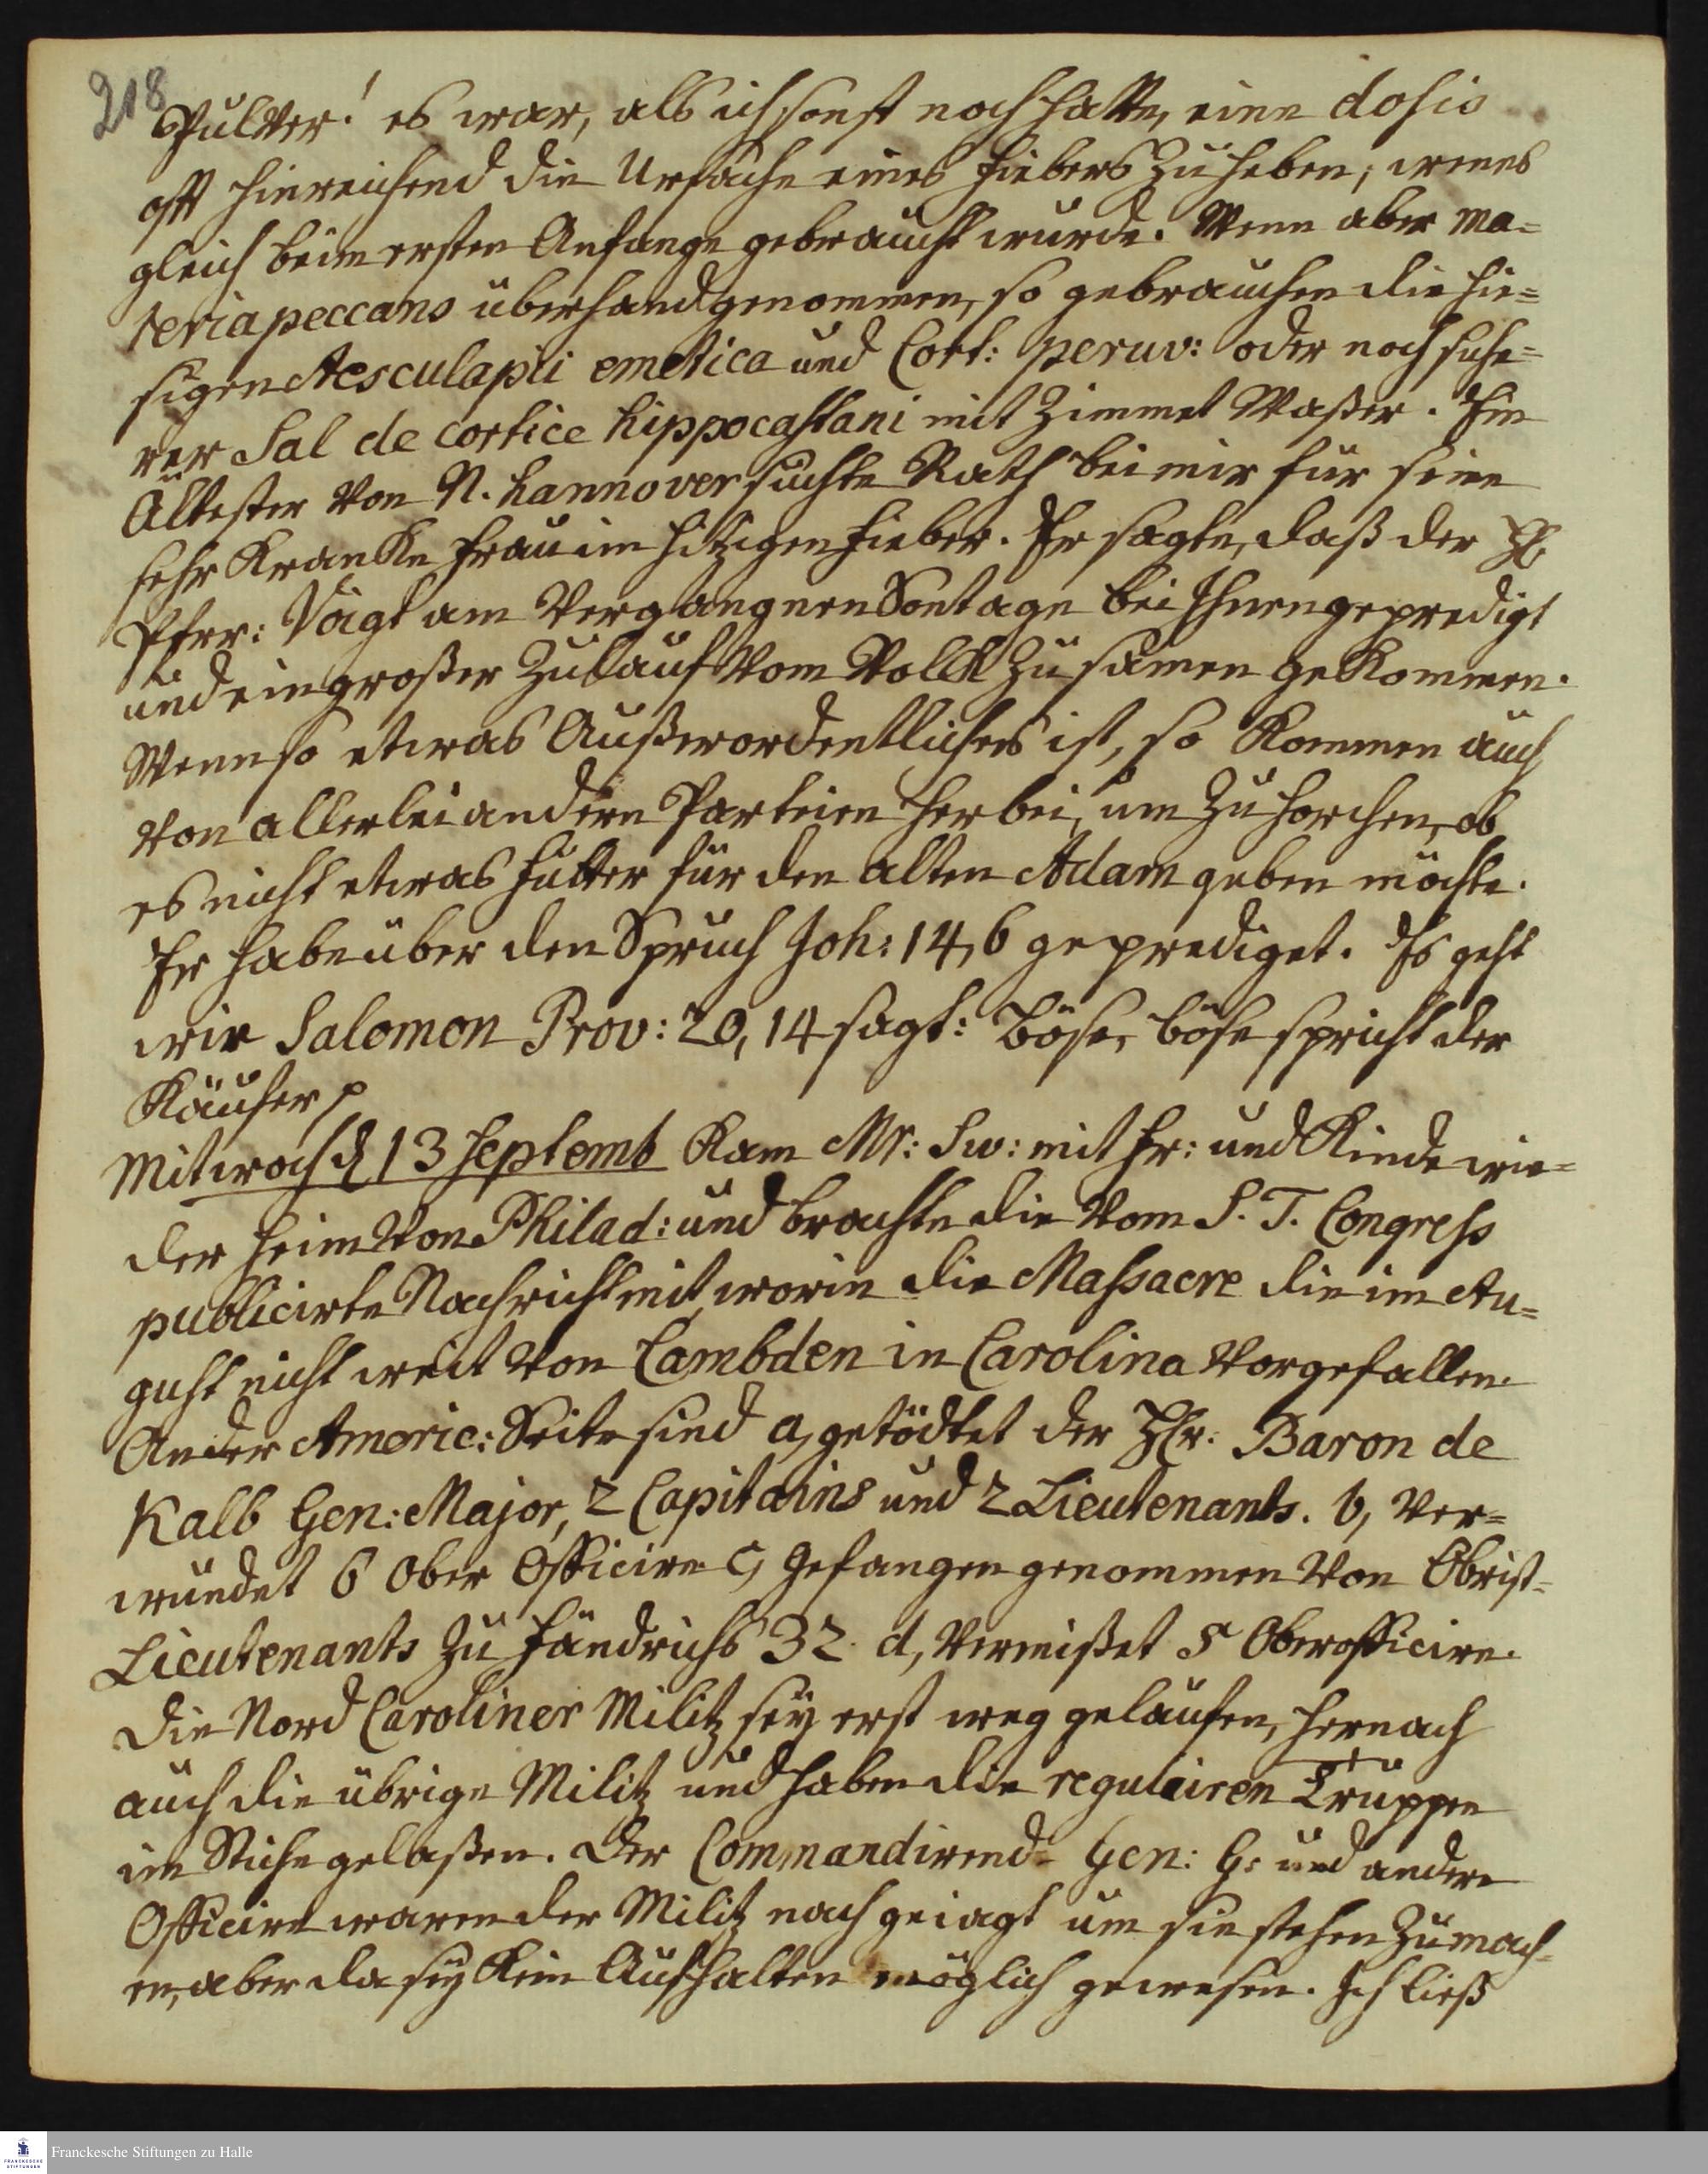 218
Pulver! es war, als ich sonst noch hatte, eine dosis
offt hinreichend die Ursache eines Fiebers zu heben, wenns
gleich beim ersten Anfange gebraucht wurde. Wenn aber ma=
teria peccans überhand genommen, so gebrauchen die hie=
sigen Aesculapii emetica und Cort: peruv: oder noch siche=
rer Sal de cortice hippocastani mit Zimmet Waßer. Ein
Ältester von N. hannover suchte Rath bei mir für seine
sehr Krancke Frau im hitzigen Fieber. Er sagte, daß der H.
Pfrr: Voigt am Vergangnen Sontage bei Ihnen gepredigt
und ein großer Zulauf vom Volck zusamen gekommen.
Wenn so etwas Außerordentliches ist, so kommen auch
von allerlei andern Parteien herbei, um zu horchen, ob
es nicht etwas Futter für den alten Adam geben möchte.
Er habe über den Spruch Joh: 14,6 geprediget. Es geht
wie Salomon Prov: 20,14 sagt: Böse, böse spricht der
Käufer p
Mitwoch d 13 Septemb Kam Mr: Sw: mit Fr: und Kinde wie=
der heim von Philad: und brachte die vom S. T. Congress
publicirte Nachricht mit, worin die Massacre die im Au=
gust nicht weit von Cambden in Carolina vorgefallen.
An der Americ: Seite sind a, getödtet der Hr. Baron de
Kalb Gen: Major, 2 Capitains und 2 Lieutenants. b, ver=
wundet 6 Ober Officire c, Gefangen genommen von Obrist=
Lieutenants zu Fändrichs 32. d, vermißet 5 Oberofficire.
Die Nord Caroliner Militz sey erst weg gelaufen, hernach
auch die übrige Militz und haben die regulairen Truppen
im Stiche gelaßen. Der Commandirend= Gen: G: und andere
Officire waren der Militz nach geiagt um sie stehen zu mach=
en, aber da sey kein Aufhalten möglich gewesen. Ich ließ
Franckesche Stiftungen zu Halle
FRANCKESCHE
STIFTUNGEN